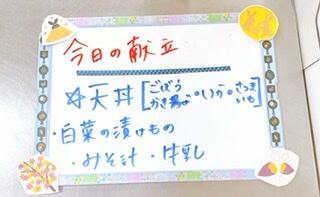 今日の献立
☆天丼[ごぼう かき揚げ・いか・さつまいも]
・白菜の漬けもの
・みそ汁 ・牛乳